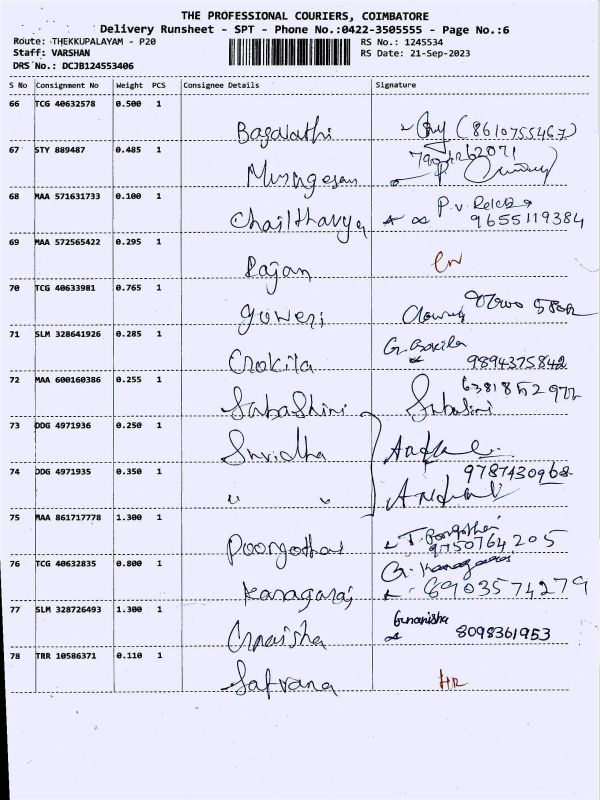 THE PROFESSIONAL COURIERS, COIMBATORE
Delivery Runsheet - SPT - Phone No.:0422-3505555 - Page No.:6
Route: THEKKUPALAYAM - P20 RS No.: 1245534
Staff: VARSHAN RS Date: 21-Sep-2023
DRS No.: DCJB124553406
S No Consignment No Weight PCS Consignee Details Signature
66 TCG 40632578 0.500 1
(8610755467)
67 STY 889487 0.485 1
Murugesan
68 MAA 571631733 0.100 1
9655119384
69 MAA 572565422 0.295 1
Rajan
70 TCG 40633981 0.765 1
goweri
71 SLM 328641926 0.285 1
G. Gokila
Gokila 9894375842
72 MAA 600160386 0.255 1
SubaShini
73 DDG 4971936 0.250 1
Srividha
9787430968
74 DDG 4971935 0.350 1
" "
75 MAA 861717778 1.300 1
9750764205
76 TCG 40632835 0.800 1
G. Kanagaraj
Kanagaraj 6903574279
77 SLM 328726493 1.300 1
Gnanisha
8098361953
78 TRR 10586371 0.110 1
Safrana HR